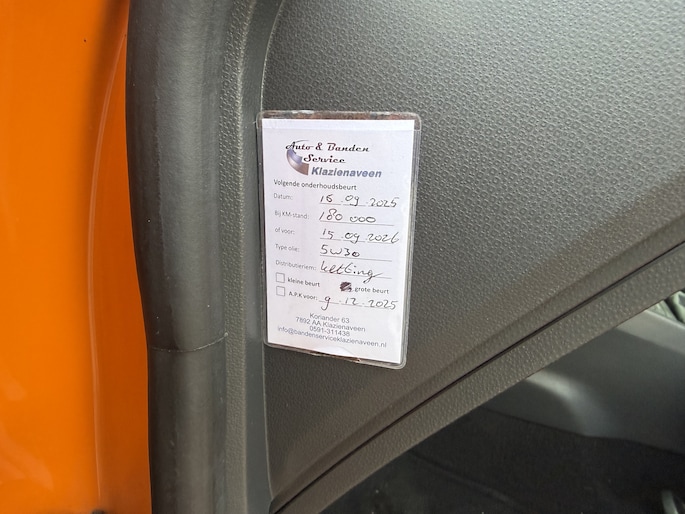 Auto & Banden
Service
Klazienaveen
Volgende onderhoudsbeurt
Datum: 16 09 2025
Bij KM-stand: 180 000
of voor: 15 09 2026
Type olie: 5W30
Distributieriem: ketting
kleine beurt grote beurt
A.P.K voor: 9 12 2025
Koriander 63
7892 AA Klazienaveen
0591-311438
info@bandenserviceklazienaveen.nl